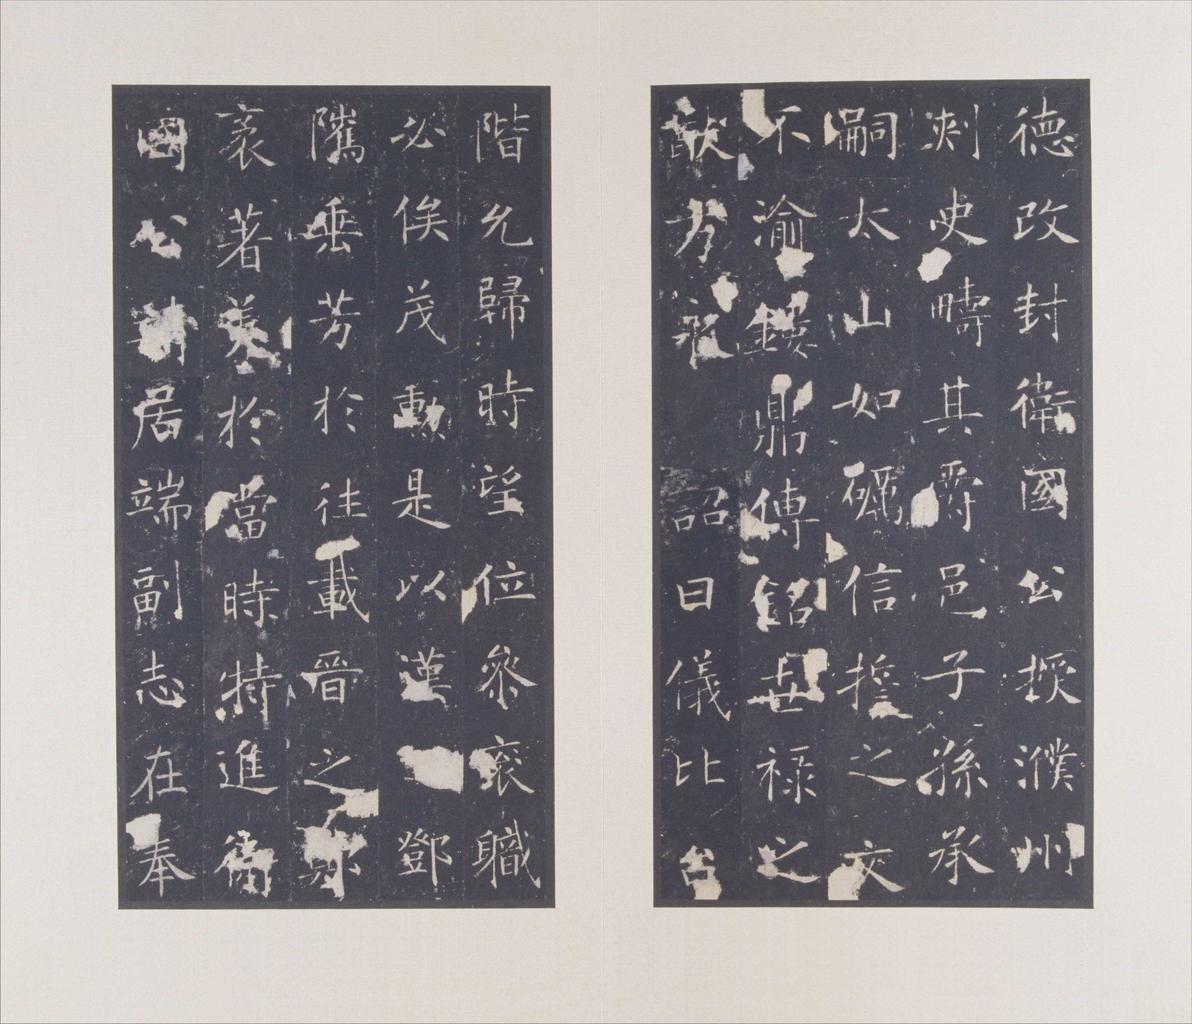 德改封衛國公授濮州
刾史疇其爵邑子孫承
嗣太山如礪信誓之文
不渝鏤鼎傳銘世禄之
猷方永詔曰儀比台
階允歸時望位參衮職
必俟茂勳是以漢鄧
隲垂芳於往載晉之鄭
袤著美於當時特進衛
國公靖居端副志在奉